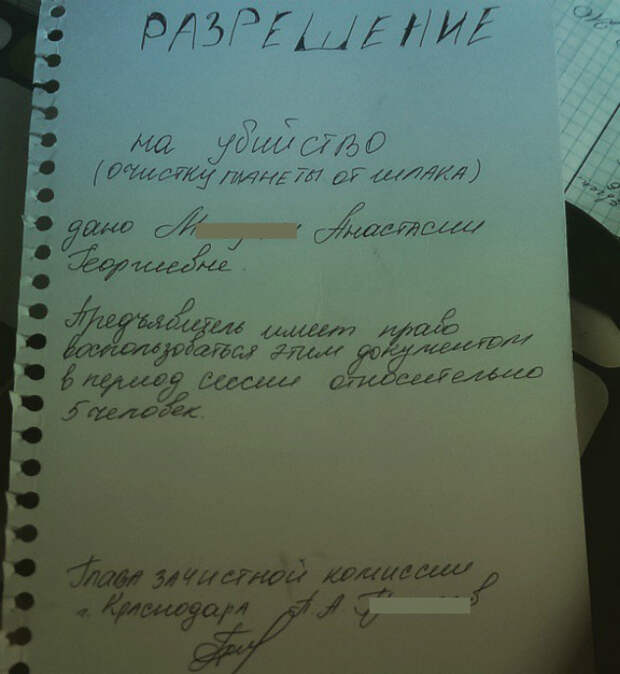 РАЗРЕШЕНИЕ
на убийство
(очистку планеты от шлака)
дано М Анастасии
Георгиевне.
Предъявитель имеет право
воспользоваться этим документом
в период сессии относительно
5 человек.
Глава зачистной комиссии
г. Краснодара П А